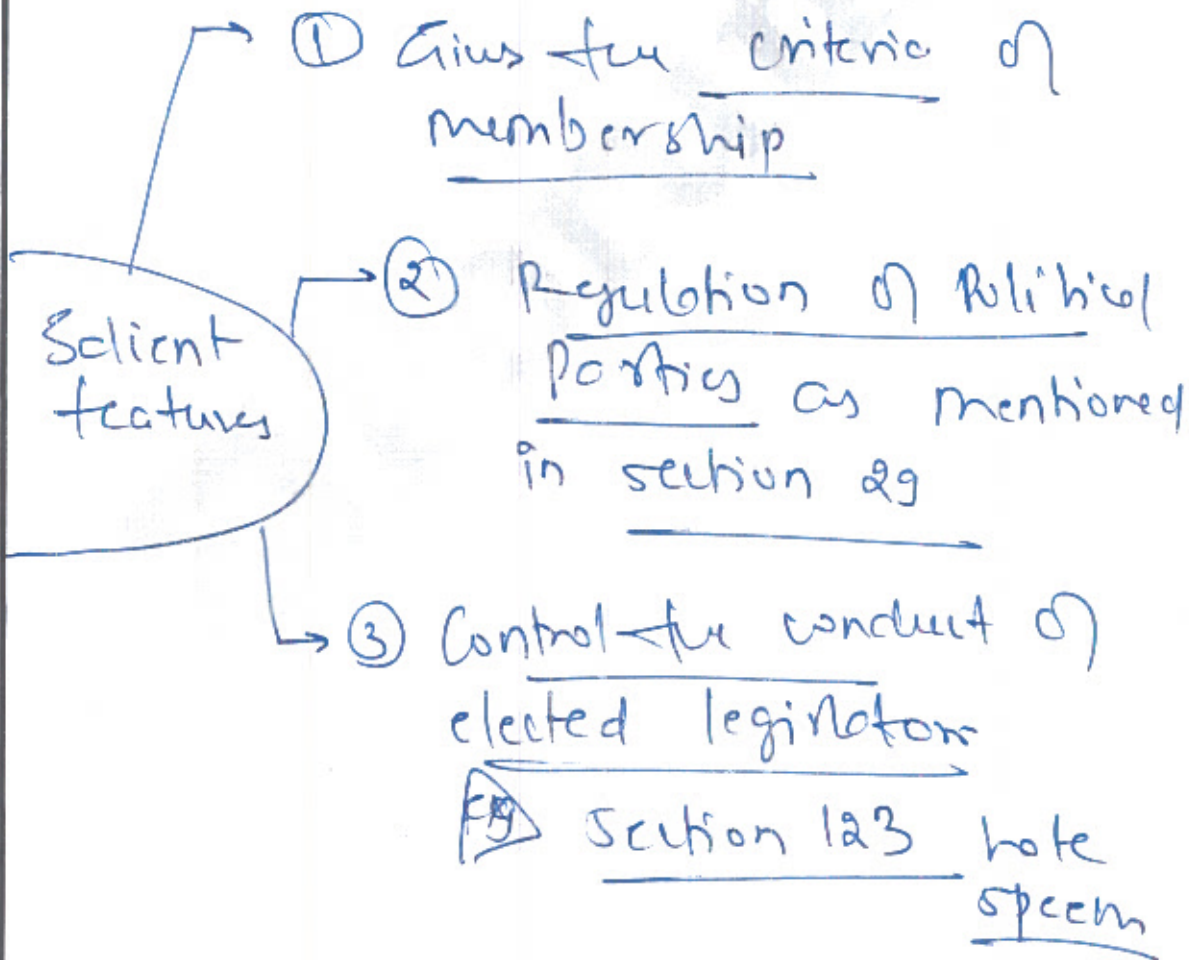 ① Gives the criteria of
membership
Salient
features
② Regulation of Political
Parties as mentioned
in section 29
③ Control the conduct of
elected legislators
Eg section 123 hate
speech